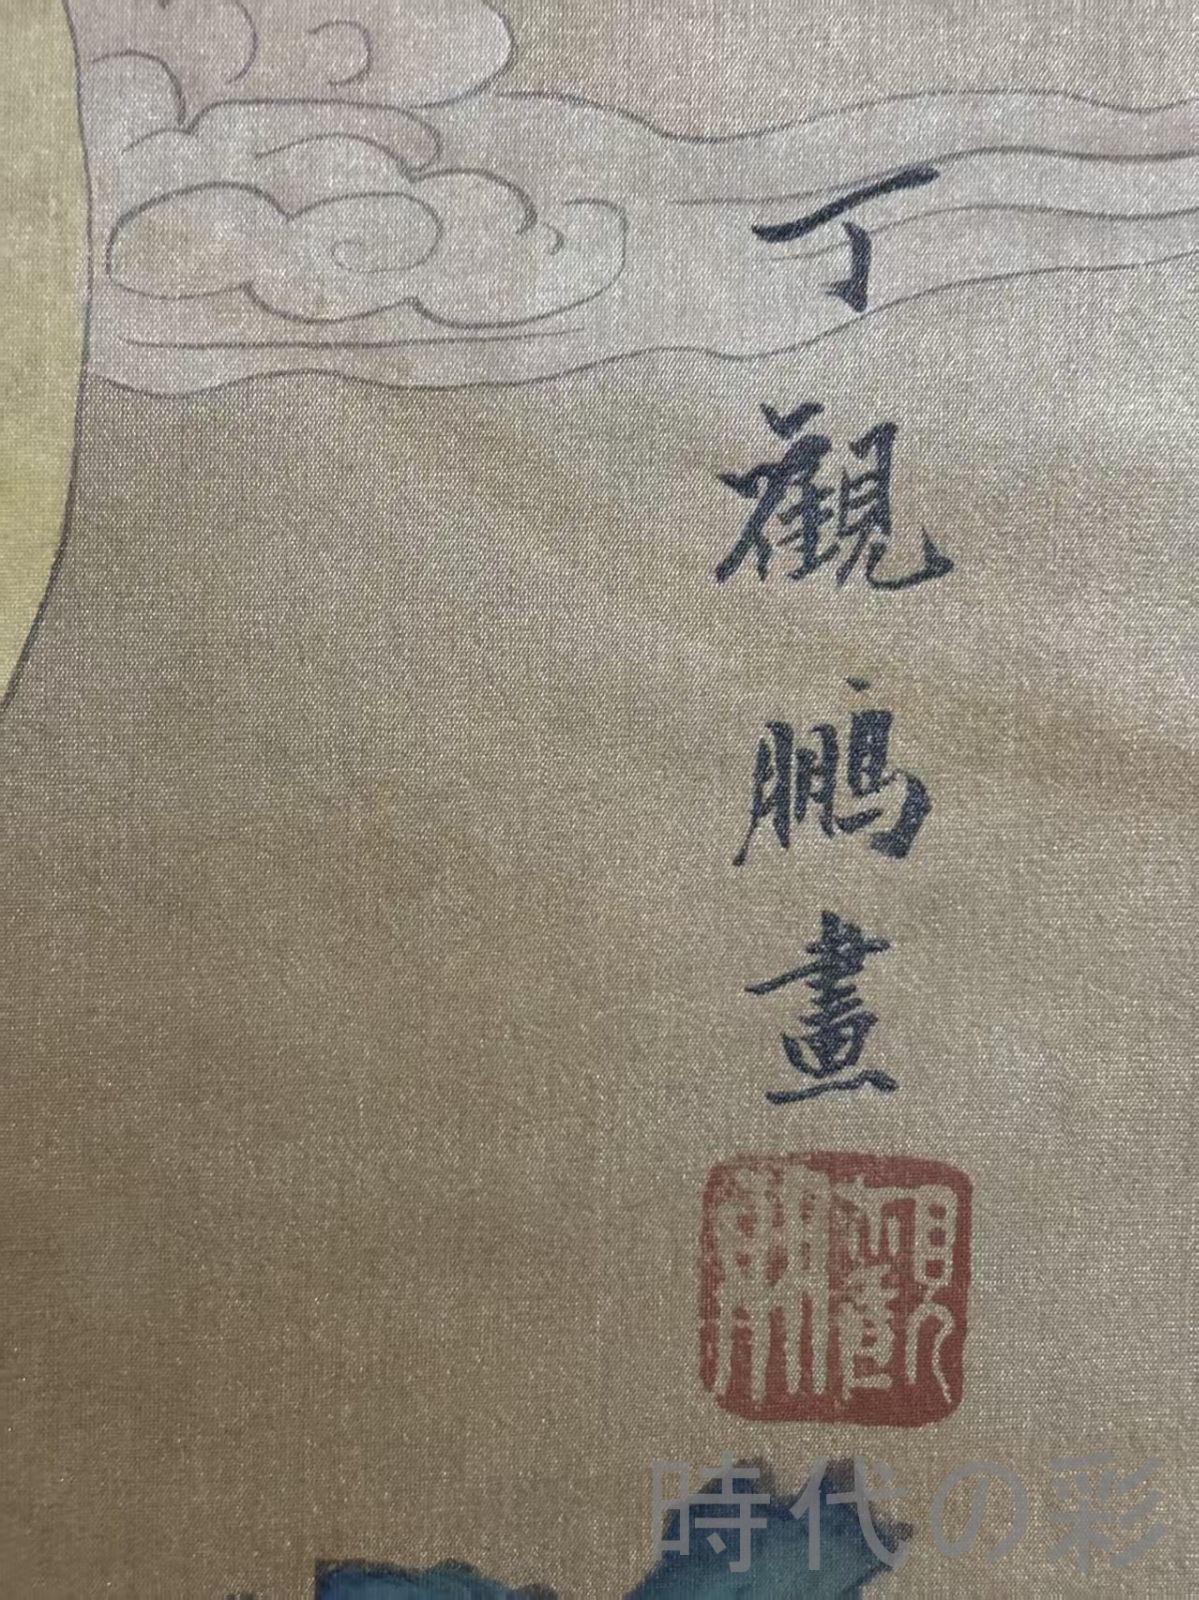 丁觀鵬畫
觀鵬
時代の彩